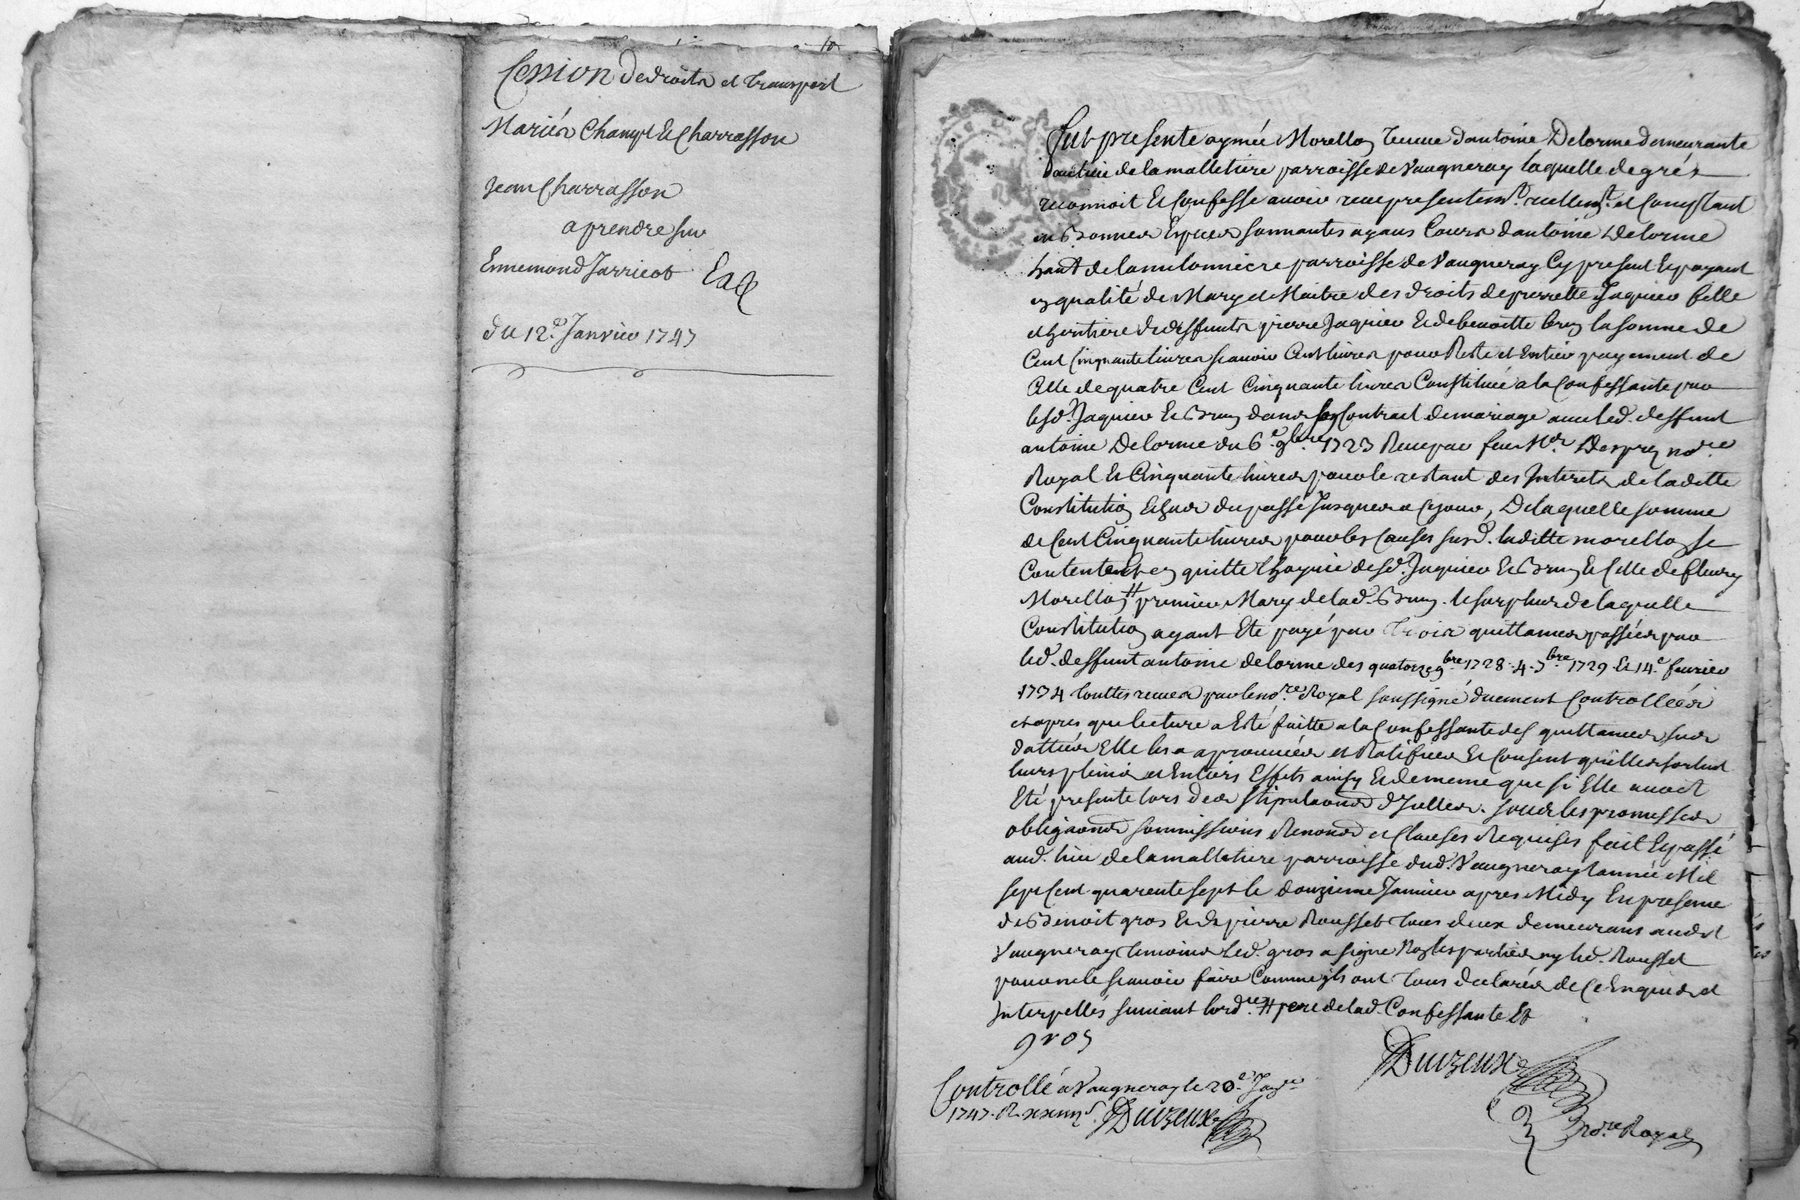 10
Cession de droits et transport
Mariés Champt et Charrasson
Jean Charrasson
a prendre sur
Ennemond Jarricot Ea
du 12.e Janvier 1747
fut presente aymée Morellon veuve d'antoine Delorme demeurante
au lieu de la malletiere parroisse de Vaugneray laquelle de gré
reconnoit et Confesse avoir reçu presentemt. reellemt. et Comptant
en Bonnes Especes sonnantes ayans Cours d'antoine Delorme
hant de la milonniere parroisse de Vaugneray Cy present Et payant
en qualité de Mary et Maitre des droits de pierrette Jaquier fille
et heritiere de deffunts pierre Jaquier et de benoitte brun la somme de
Cent Cinquante livres scavoir Cent livres pour Reste et Entier payement de
Celle de quatre Cent Cinquante livres Constituée a la Confessante par
lesd. Jaquier et Brun dans son Contract de mariage avec led. deffunt
antoine Delorme du 6.e 9bre 1723 Reçu par feu Mr. Desprez nore.
Royal et Cinquante livres pour le restant des Interets de laditte
Constitution Echus du passé Jusques a Ce jour, De laquelle somme
de Cent Cinquante livres pour les Causes susd. laditte morellon se
Contente et en quitte l'hoyrie desd. Jaquier et Brun et Celle de fleury
Morellon # premier Mary de lad. Brun. le surplus de laquelle
Constitution ayant Eté payé par trois quittances passées par
led. deffunt antoine delorme des quatorze 9bre 1728. 4. 7bre 1729 et 14.e fevrier
1734 touttes recues par le nore. Royal soussigné duement Controllées
et apres que lecture a Eté faitte a la Confessante des quittances sus
dattées Elle les a aprouvées et Ratifiées et Consent qu'elles sortent
leurs pleins et Entiers Effets ainsy et de meme que si Elle avoit
Eté presente lors des stipulaons d'Icelles. sous les promesses
obligaons soumissions Renonons et Clauses Requises fait Et passé
aud. lieu de la malletiere parroisse dud. Vaugneray l'année Mil
sept Cent quarente sept le douzieme Janvier apres Midy En presence
de Benoit gros et de pierre Rousset tous deux demeurans audit
Vaugneray temoins led. gros a signé Non les parties ny led. Rousset
pour ne le scavoir faire Comme ils ont tous declarés de Ce Enquis et
Interpellés suivant l'ordce. # pere de lad. Confessante Et
gros
Duizeux
nore. Royal
Controllé a Vaugneray le 20.e Janer
1747. R. Duizeux